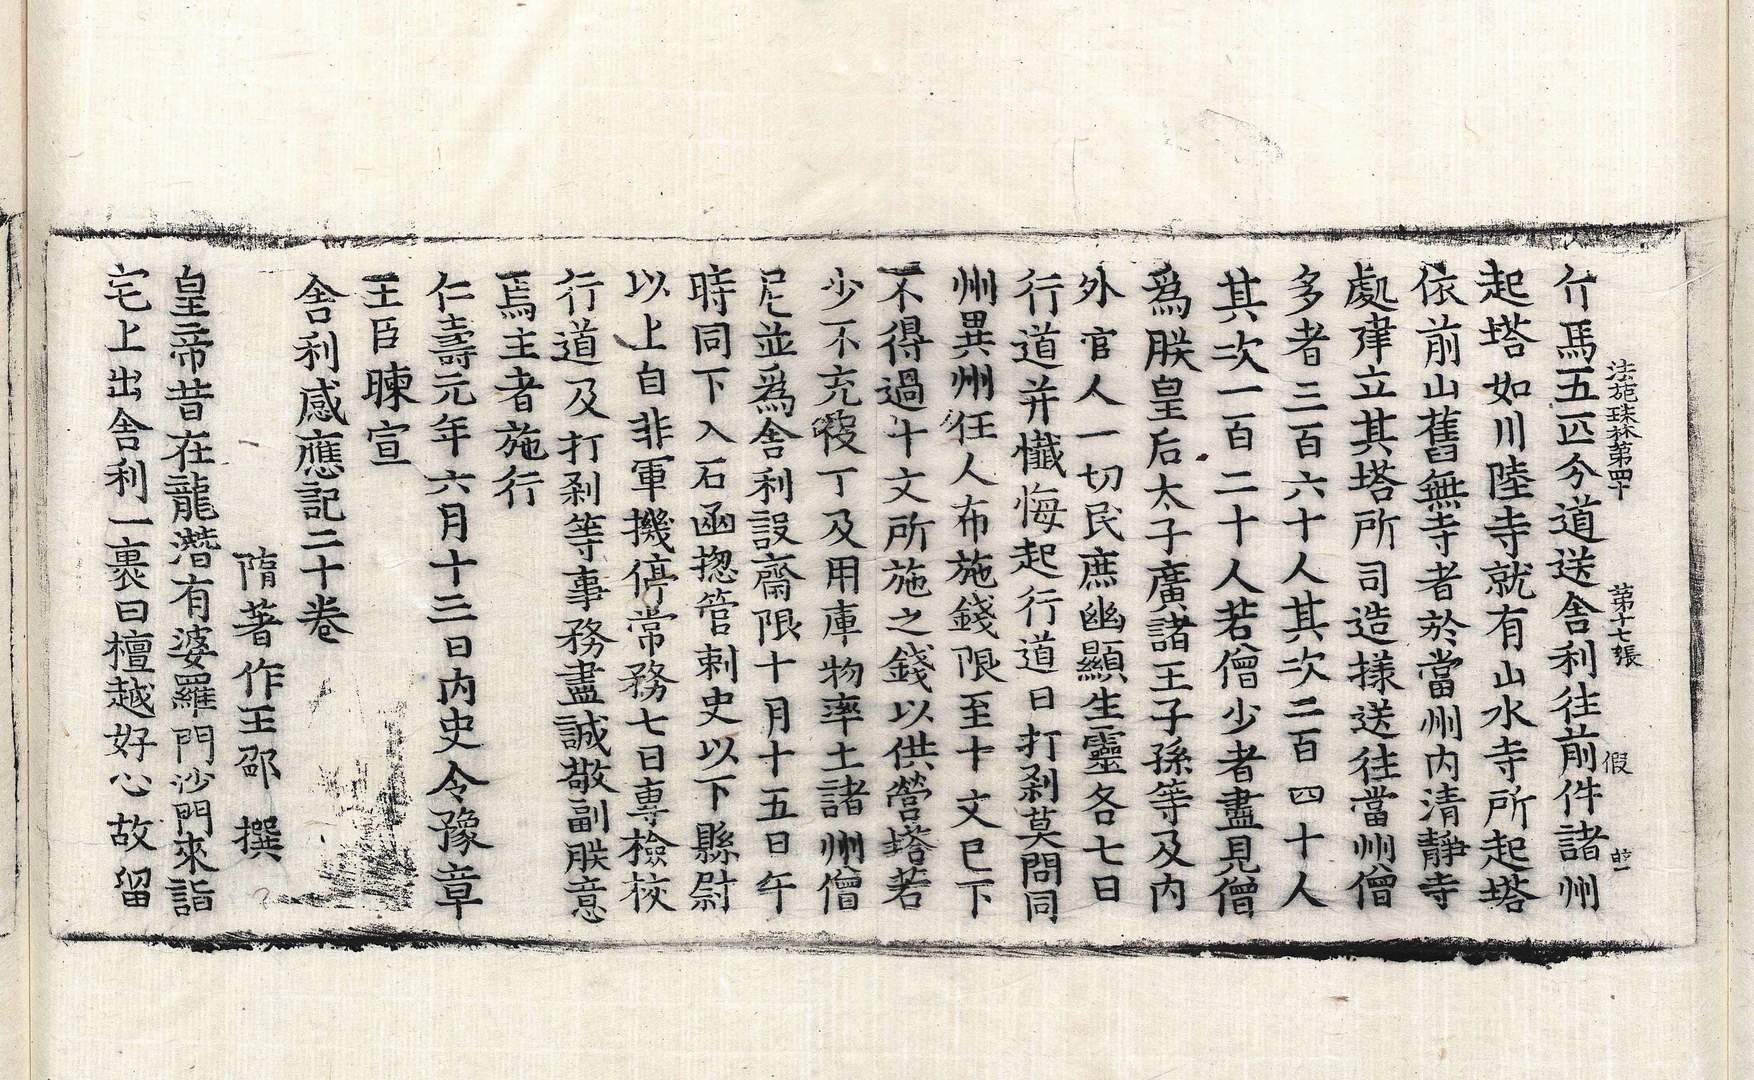 法苑珠林第四十　第十七張　假
斤馬五匹分道送舍利往前件諸州
起塔如川陸寺就有山水寺所起塔
依前山舊無寺者於當州內清靜寺
處建立其塔所司造㨾送往當州僧
多者三百六十人其次二百四十人
其次一百二十人若僧少者盡見僧
爲朕皇后太子廣諸王子孫等及內
外官人一切民庶幽顯生靈各七日
行道并懺悔起行道日打剎莫問同
州異州任人布施錢限至十文已下
不得過十文所施之錢以供營塔若
少不充役丁及用庫物率土諸州僧
尼並爲舍利設齋限十月十五日午
時同下入石函揔管刺史以下縣尉
以上自非軍機停常務七日專檢校
行道及打剎等事務盡誠敬副朕意
焉主者施行
仁壽元年六月十三日內史令豫章
王臣暕宣
舍利感應記二十卷
隋著作王邵　撰
皇帝昔在龍潛有婆羅門沙門來詣
宅上出舍利一裹曰檀越好心故留